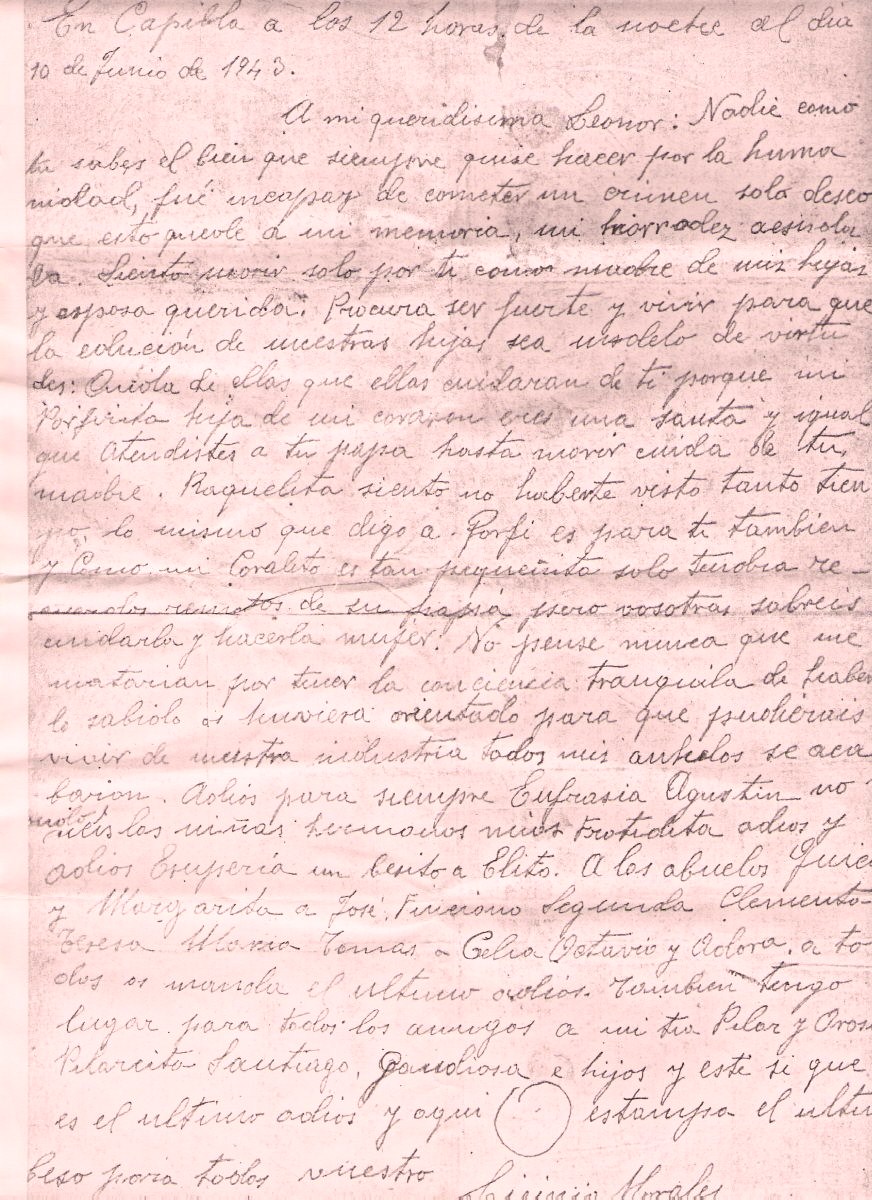 En Capilla a las 12 horas de la noche del dia
10 de Junio de 1943.
A mi queridisima Leonor: Nadie como
tu sabes el bien que siempre quise hacer por la huma
nidad, fué incapaz de cometer un crimen solo deseo
que esto quede a mi memoria, mi honradez acsisola
da. Siento morir solo por ti como madre de mis hijas
y esposa querida. Procura ser fuerte y vivir para que
la eduación de nuestras hijas sea modelo de virtu
des: Cuida de ellas que ellas cuidaran de ti porque mi
Porfirita hija de mi corazon eres una santa y igual
que atendistes a tu papa hasta morir cuida de tu
madre. Raquelita siento no haberte visto tanto tien
po, lo mismo que digo a Porfi es para ti tambien
y Como mi Coralito es tan pequeñita solo tendra re-
cuerdos remotos de su papá pero vosotras sabreis
cuidarla y hacerla mujer. No pense nunca que me
matarian por tener la conciencia tranquila de haber
lo sabido os huviera orientado para que pudierais
vivir de nuestra industria todos mis anhelos se aca
baron. Adios para siempre Eufrasia Agustin no
las niñas hermanos mios adios y
adios un besito a Elito. A los abuelos
y Margarita a José, Segunda Clemento
Teresa Maria Tomas a Celia Octavio y Adora, a to
dos os manda el ultimo adios. Tambien tengo
lugar para todos los amigos a mi tia Pilar y
Pilarcita Santiago, Gaudiosa e hijos y este si que
es el ultimo adios y aqui estampa el ulti
beso para todos vuestro
Licinio Morales